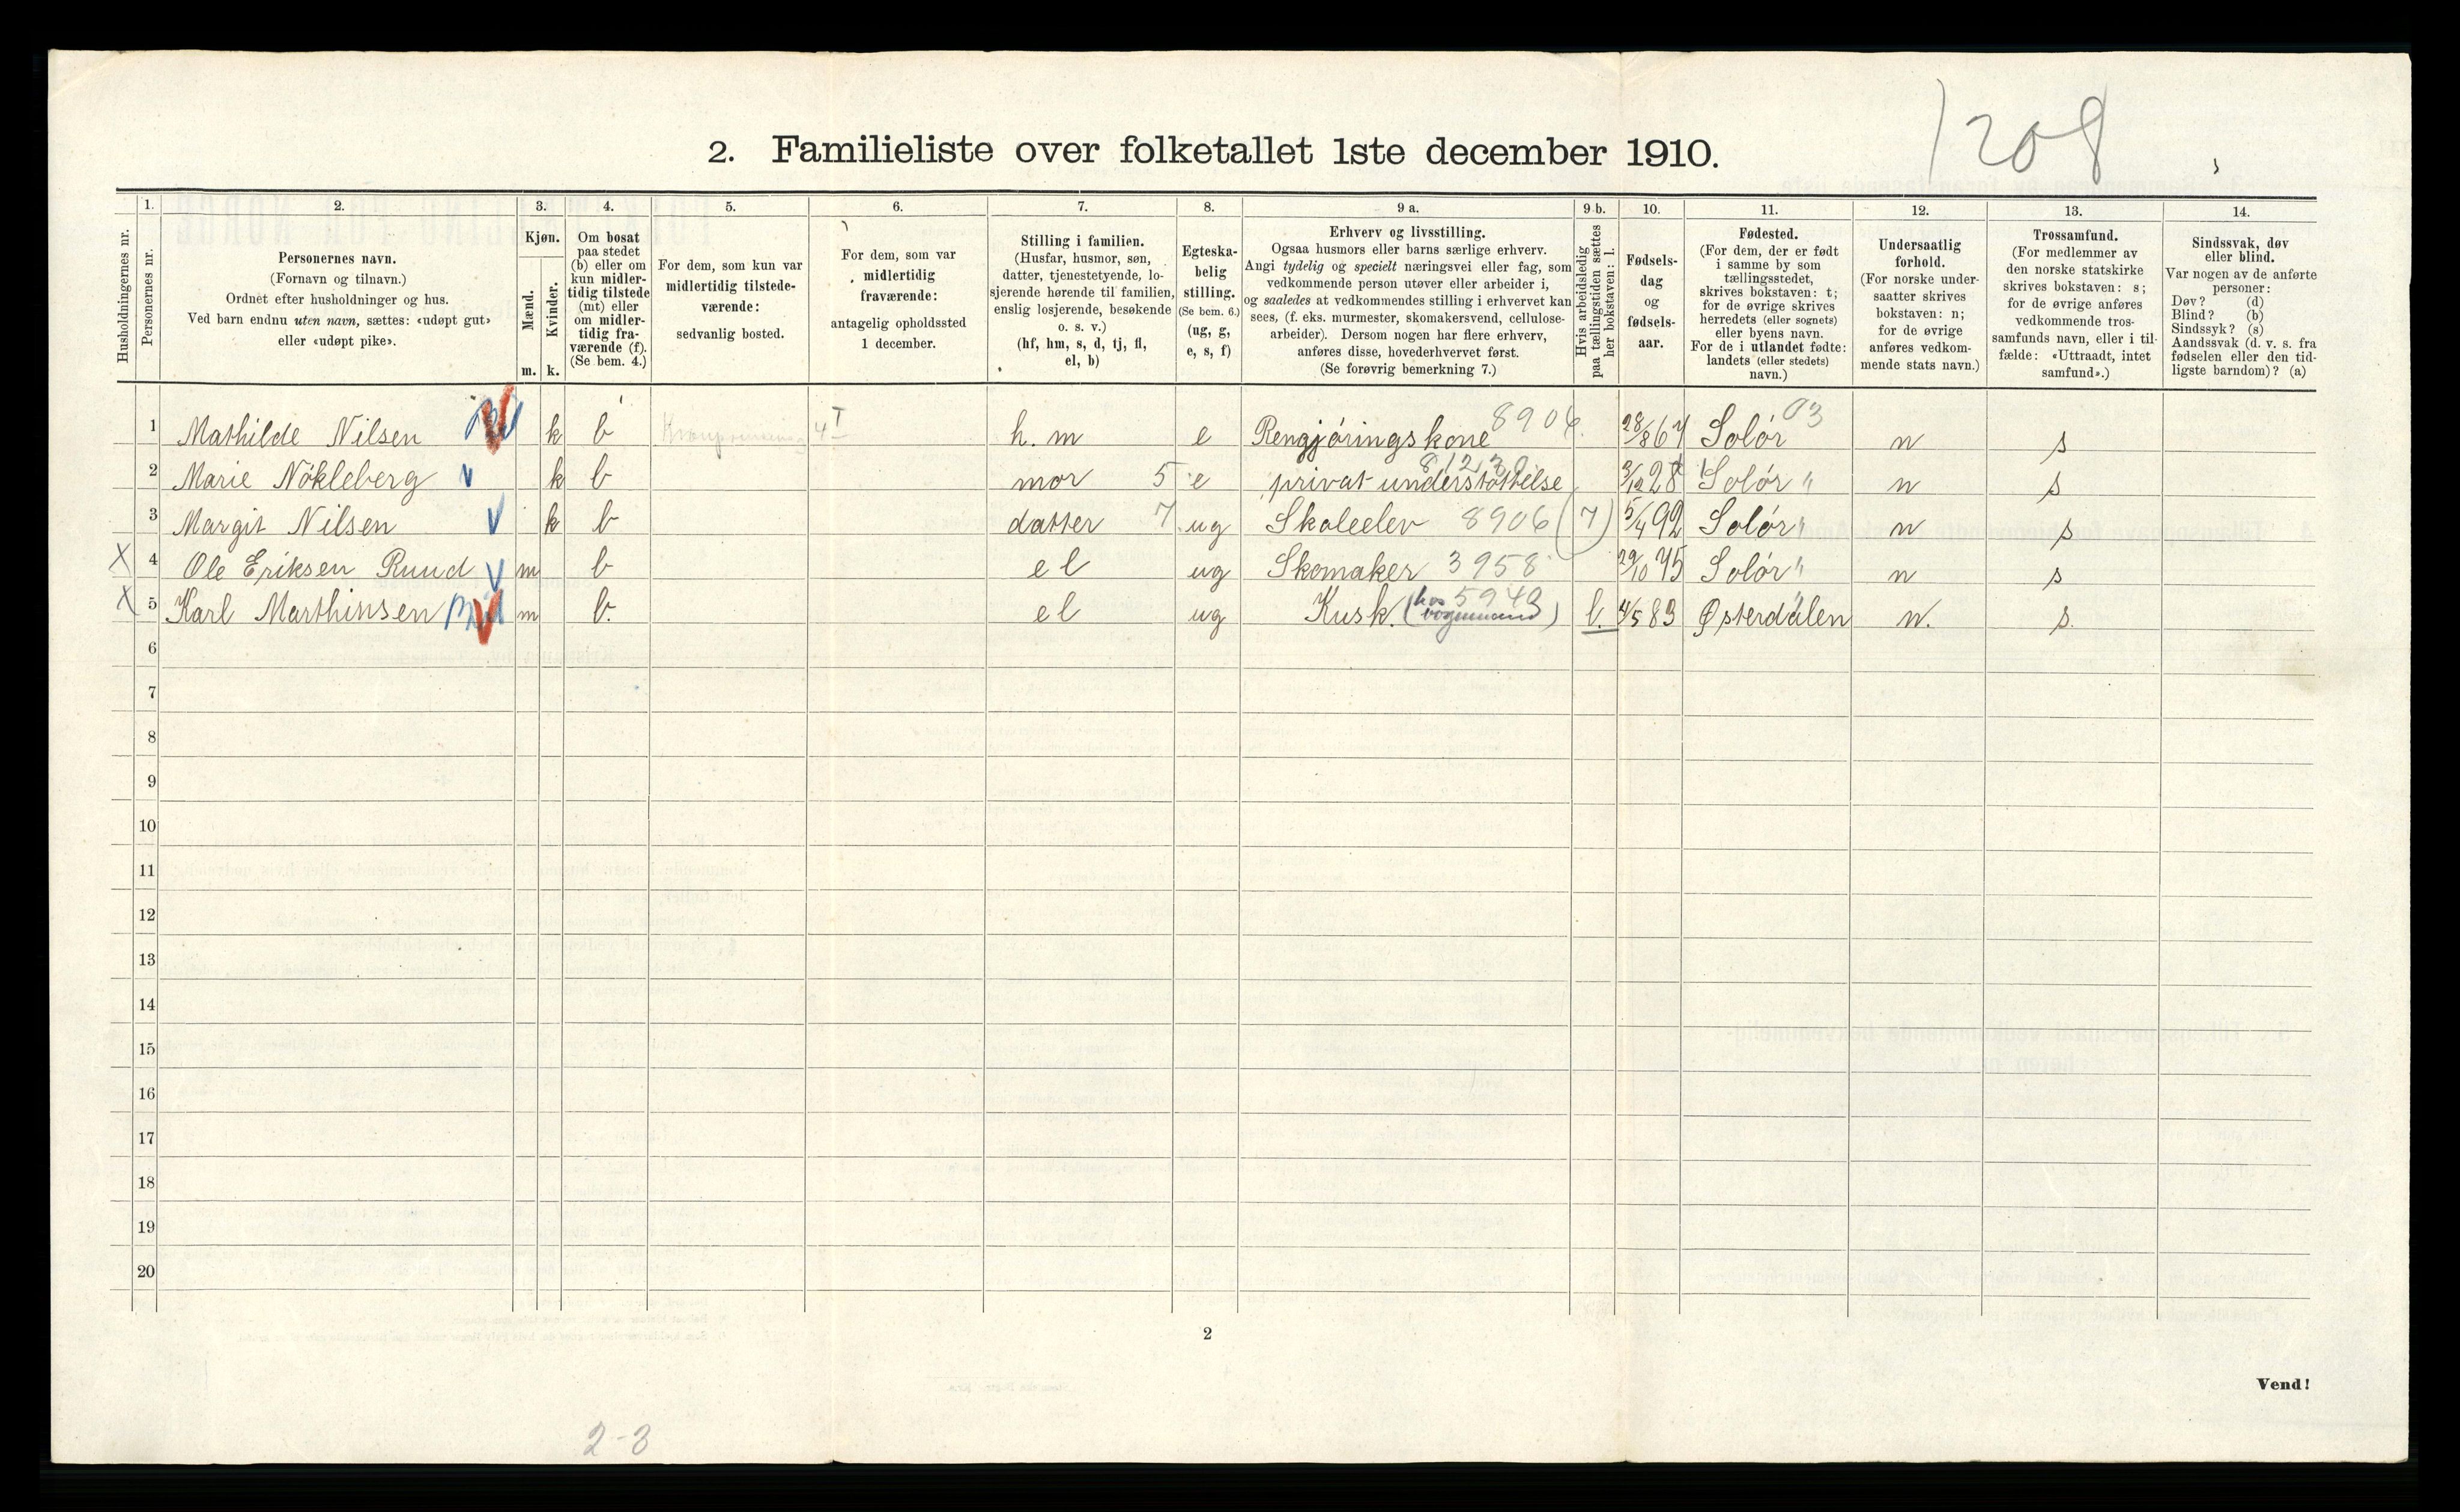 1208
2. Familieliste over folketallet 1ste december 1910.
Husholdningernes nr.
1.
Personernes nr.
2.
Personernes navn.
(Fornavn og tilnavn.)
Ordnet efter husholdninger og hus.
Ved barn endnu uten navn, sættes: «udøpt gut»
eller «udøpt pike».
3.
Kjøn.
Mænd.
Kvinder.
m. k.
4.
Om bosat
paa stedet
(b) eller om
kun midler-
tidig tilstede
(mt) eller
om midler-
tidig fra-
værende (f).
(Se bem. 4.)
5.
For dem, som kun var
midlertidig tilstede-
værende:
sedvanlig bosted.
6.
For dem, som var
midlertidig
fraværende:
antagelig opholdssted
1 december.
7.
Stilling i familien.
(Husfar, husmor, søn,
datter, tjenestetyende, lo-
sjerende hørende til familien,
enslig losjerende, besøkende
o. s. v.)
(hf, hm, s, d, tj, fl,
el, b)
8.
Egteska-
belig
stilling.
(Se bem. 6.)
(ug, g,
e, s, f)
9 a.
Erhverv og livsstilling.
Ogsaa husmors eller barns særlige erhverv.
Angi tydelig og specielt næringsvei eller fag, som
vedkommende person utøver eller arbeider i,
og saaledes at vedkommendes stilling i erhvervet kan
sees, (f. eks. murmester, skomakersvend, cellulose-
arbeider). Dersom nogen har flere erhverv,
anføres disse, hovederhvervet først.
(Se forøvrig bemerkning 7.)
9 b.
Hvis arbeidsledig
paa tællingstiden sættes
her bokstaven: l.
10.
Fødsels-
dag
og
fødsels-
aar.
11.
Fødested.
(For dem, der er født
i samme by som
tællingsstedet,
skrives bokstaven: t;
for de øvrige skrives
herredets (eller sognets)
eller byens navn.
For de i utlandet fødte:
landets (eller stedets)
navn.)
12.
Undersaatlig
forhold.
(For norske under-
saatter skrives
bokstaven: n;
for de øvrige
anføres vedkom-
mende stats navn.)
13.
Trossamfund.
(For medlemmer av
den norske statskirke
skrives bokstaven: s;
for de øvrige anføres
vedkommende tros-
samfunds navn, eller i til-
fælde: «Uttraadt, intet
samfund».)
14.
Sindssvak, døv
eller blind.
Var nogen av de anførte
personer:
Døv? (d)
Blind? (b)
Sindssyk? (s)
Aandssvak (d. v. s. fra
fødselen eller den tid-
ligste barndom)? (a)
1 Mathilde Nilsen k b h.m e Rengjøringskone 8906. 28/8 67 Solør 03 n s
2 Marie Nökleberg v k b mor 5 e privat understøttelse 3/12 28 Solör " n s
3 Margit Nilsen v k b datter 7 ug Skoleelev 8906 (7) 5/4 92 Solör " n s
X 4 Ole Eriksen Ruud v m b el ug Skomaker 3958 29/10 45 Solör " n s
X 5 Karl Marthinsen m b. el ug Kusk. (hos vognmand) 5943 l. 4/5 83 Østerdalen n. s.
6
7
8
9
10
11
12
13
14
15
16
17
18
19
20
2
Vend!
2-3